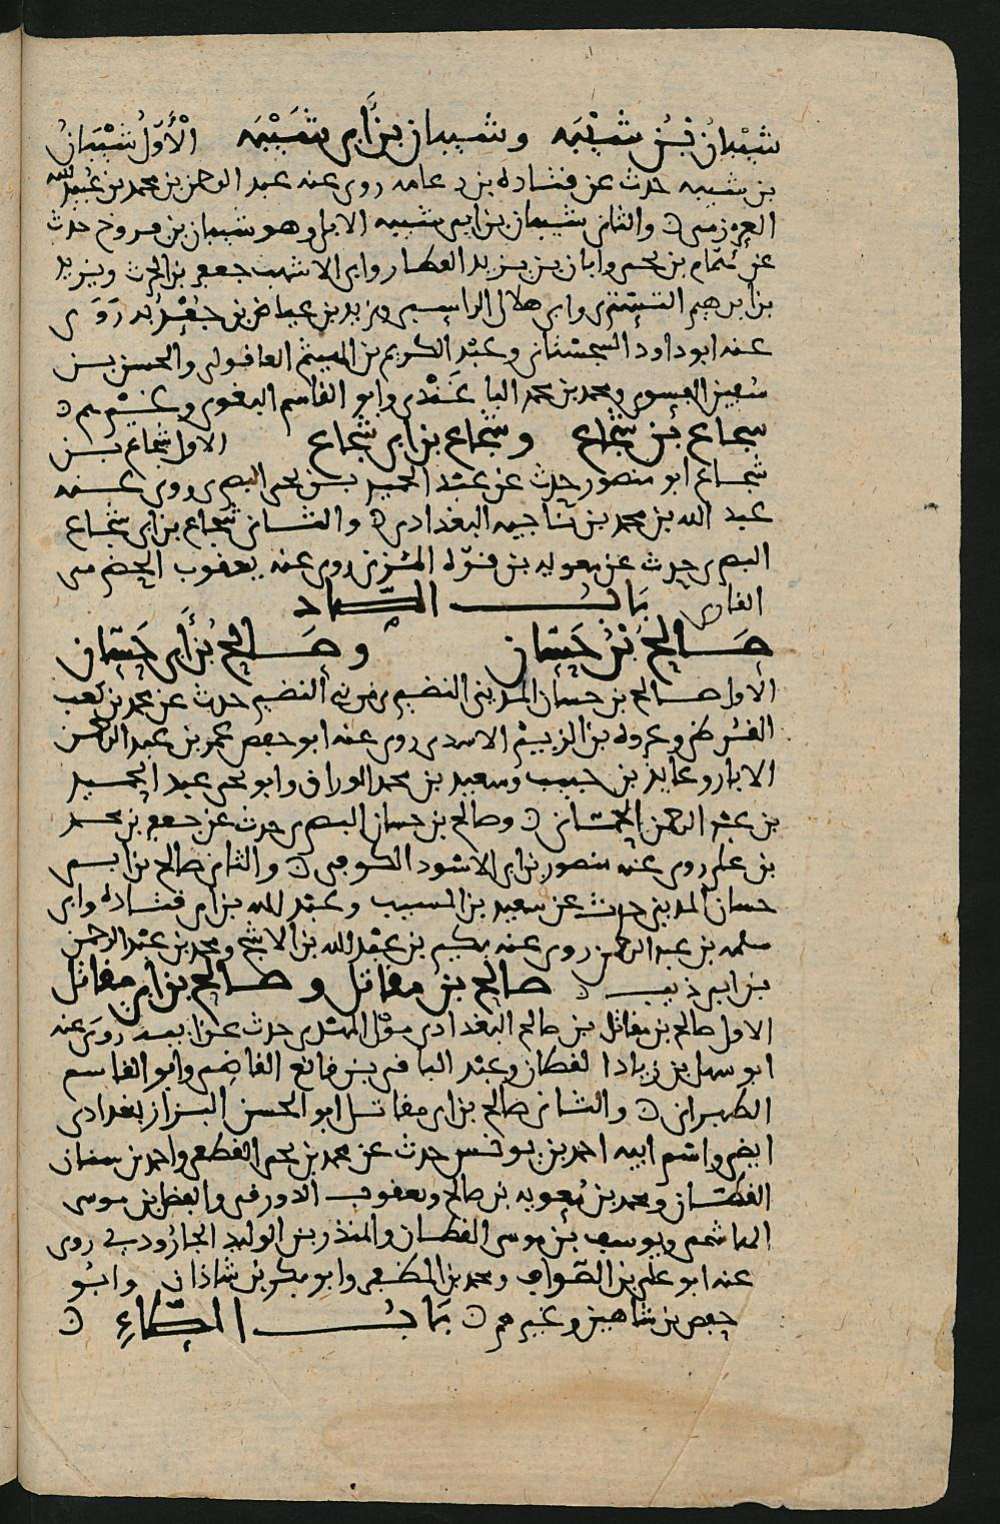 شيبان بن شيبه وشيبان بن أبى شيبه الأول شيبان
بن شيبه حدث عن قتاده بن دعامه روى عنه عبد الرحمن بن محمد بن عبيد الله
العرزمى ۝ والثانى شيبان بن ابى شيبه الابلى وهو شيبان بن فروخ حدث
عن همام بن يحيى وابان بن يزيد العطار وابى الاشهب جعفر بن الحرث ويزيد
بن ابرهيم التسترى وابى هلال الراسبى ويزيد بن عياض بن جعدبه روى
عنه ابو داود السجستانى وعبد الكريم بن الهيثم العاقولى والحسن بن
سفين النسوى ومحمد بن محمد الباغندى وابو القاسم البغوى وغيرهم ۝
شجاع بن شجاع وشجاع بن ابى شجاع الاول شجاع بن
شجاع ابو منصور حدث عن عبد الحميد بن يحيى البصرى روى عنه
عبد الله بن محمد بن ناجيه البغدادى ۝ والثانى شجاع بن ابى شجاع
البصرى حدث عن معويه بن قره المزنى روى عنه يعقوب الحضرمى
القارى باب الصاد
صالح بن حسان وصالح بن أبى حسان
الاول صالح بن حسان المدينى النضيرى من بنى النضير حدث عن محمد بن كعب
القرظى وعروه بن الزبير الاسدى روى عنه ابو حفص عمر بن عبد الرحمن
الابار وعايذ بن حبيب وسعيد بن محمد الوراق وابو يحيى عبد الحميد
بن عبد الرحمن الحمانى ۝ وصالح بن حسان البصرى حدث عن جعفر بن محمد
بن على روى عنه منصور بن ابى الاسود الكوفى ۝ والثانى صالح بن ابى
حسان المدينى حدث عن سعيد بن المسيب وعبد الله بن ابى قتاده وابى
سلمه بن عبد الرحمن روى عنه بكير بن عبد الله بن الاشج ومحمد بن عبد الرحمن
بن ابى ذيب ۝ صالح بن مقاتل وصالح بن ابى مقاتل
الاول صالح بن مقاتل بن صالح البغدادى مولى المهدى حدث عن ابيه روى عنه
ابو سهل بن زياد القطان وعبد الباقى بن قانع القاضى وابو القاسم
الطبرانى ۝ والثانى صالح بن ابى مقاتل ابو الحسن البزاز بغدادى
ايضا واسم ابيه احمد بن يونس حدث عن محمد بن يحيى القطعى واحمد بن سنان
القطان ومحمد بن معويه بن صالح ويعقوب الدورقى والفضل بن موسى
الهاشمى ويوسف بن موسى القطان والمنذر بن الوليد الجارودى روى
عنه ابو على بن الصواف ومحمد بن المظفر وابو بكر بن شاذان وابو
حفص بن شاهين وغيرهم ۝ باب الطاء ۝